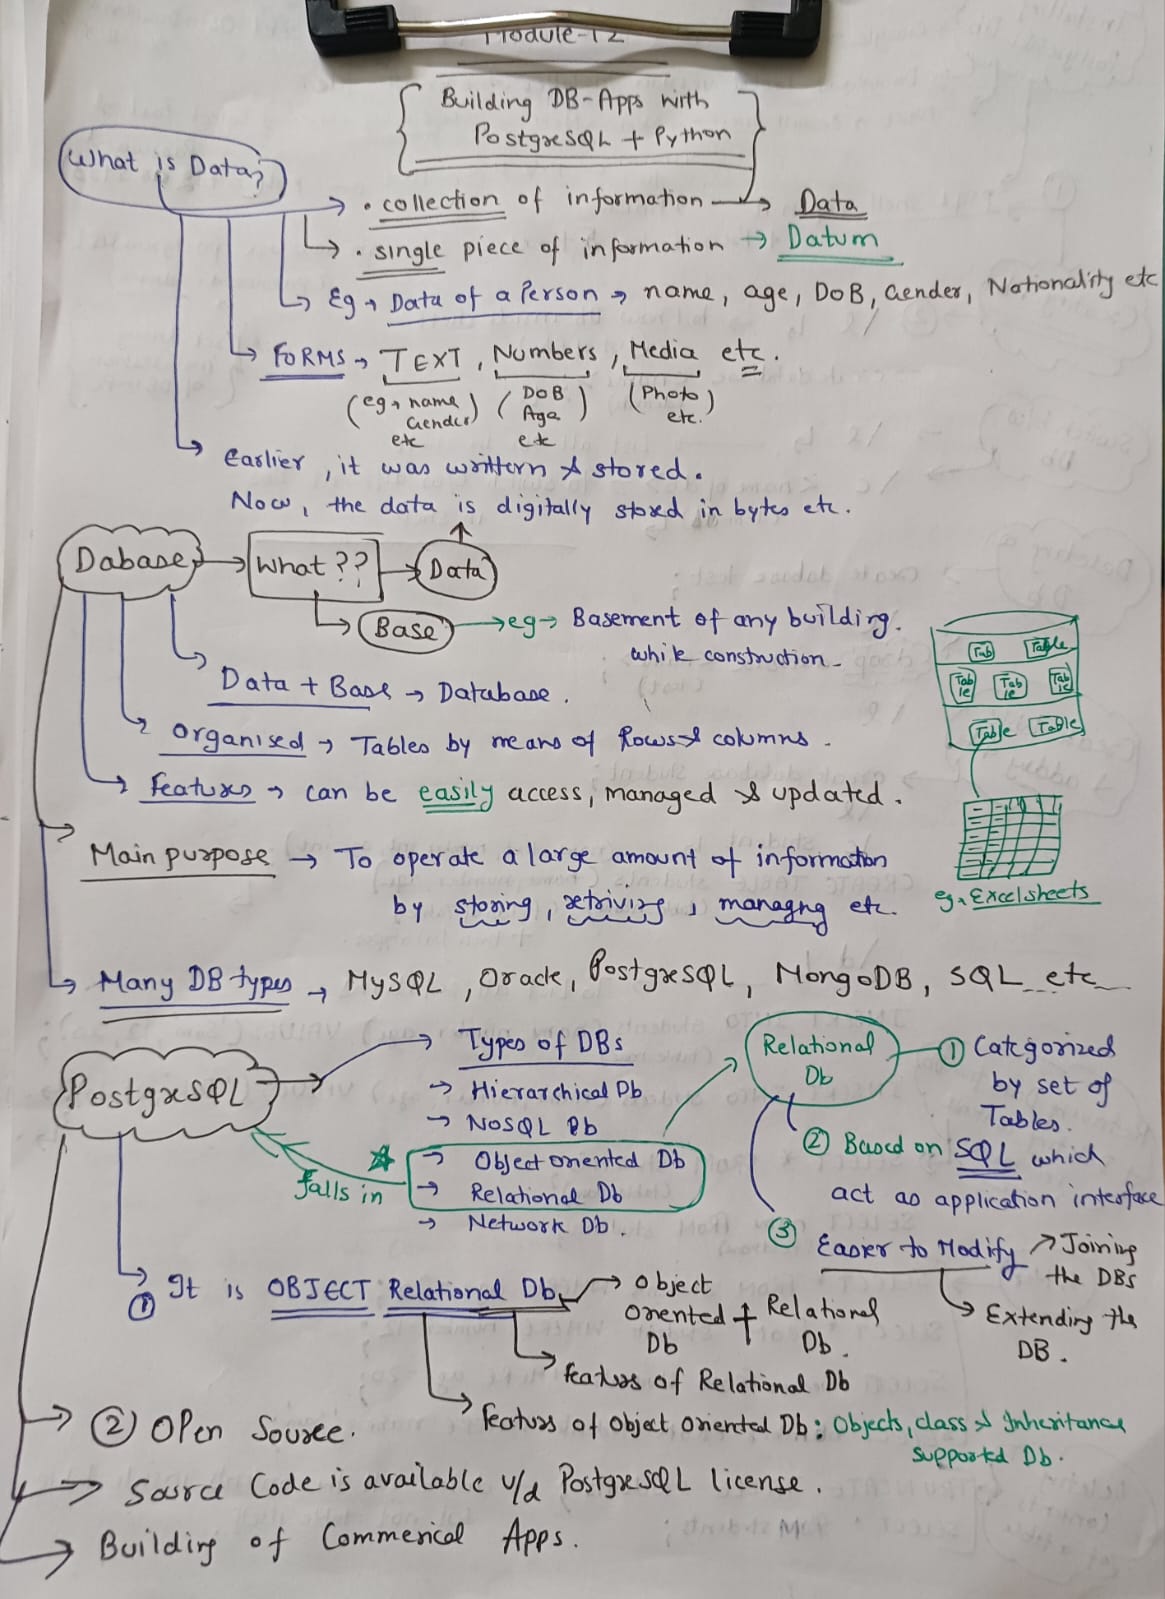 Module-12
Building DB-Apps with
PostgreSQL + Python
What is Data?
. collection of information → Data
. single piece of information → Datum
Eg → Data of a Person → name, age, DoB, Gender, Nationality etc
FORMS → TEXT, Numbers, Media etc.
(eg → name Gender etc) (DOB Age etc) (Photo etc.)
Earlier, it was writtern & stored.
Now, the data is digitally stored in bytes etc.
Dabase → What ?? → Data
Base → eg → Basement of any building.
while construction.
Tab Table
Table Table Table
Table Table
Data + Base → Database.
Organised → Tables by means of Rows & columns.
Features → can be easily access, managed & updated.
Main purpose → To operate a large amount of information
by storing, retriving, managng etc.
eg, Excelsheets
Many DB types → MySQL, Oracle, PostgreSQL, MongoDB, SQL etc
PostgreSQL
→ Types of DBs
→ Hierarchical Db
→ NoSQL Db
→ Object oriented Db
→ Relational Db
→ Network Db.
falls in
Relational
Db
① Categorized
by set of
Tables.
② Based on SQL which
act as application interface
③ Easier to Modify ↗ Joining
the DBs
→ Extending the
DB.
① It is OBJECT Relational Db → Object
oriented
Db
+ Relational
Db.
features of Relational Db
features of Object Oriented Db: Objects, class & Inheritance
supported Db.
② OPen Source.
→ Source Code is available u/d PostgreSQL license.
→ Building of Commerical Apps.